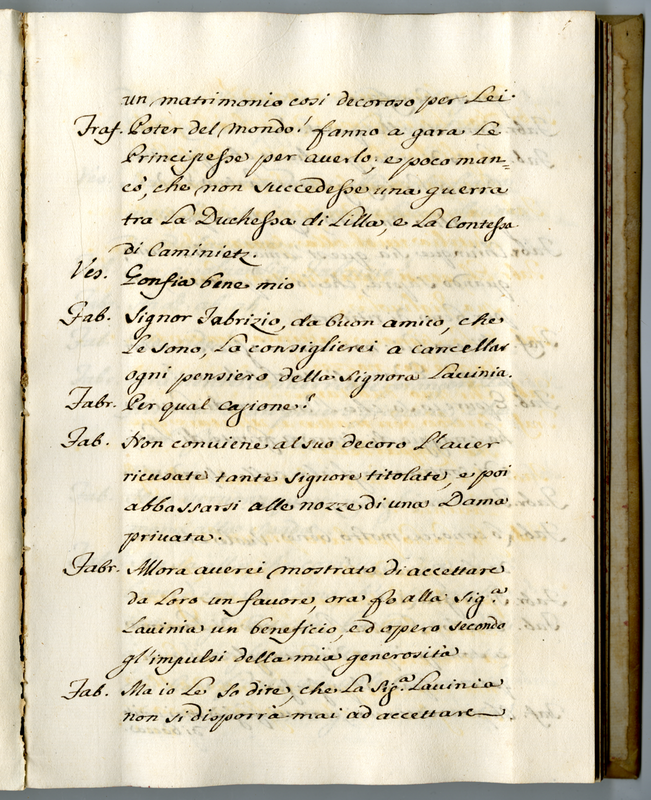 un matrimonio così decoroso per Lei.
Traf. Poter del mondo! fanno a gara Le
Principesse per averlo; e poco man=
cò, che non succedesse una guerra
tra La Duchessa di Lilla, e La Contessa
di Caminietz.
Ves. Gonfia bene mio
Fab. Signor Fabrizio, da buon amico, che
Le sono, La consiglierei a cancellar
ogni pensiero della Signora Lavinia.
Fabr. Per qual cagione?
Fab. Non conviene al suo decoro L'aver
ricusate tante signore titolate, e poi
abbassarsi alle nozze di una Dama
privata.
Fabr. Allora averei mostrato di accettare
da Loro un favore, ora fo alla Sig.ra
Lavinia un beneficio, ed opero secondo
gl'impulsi della mia generosità
Fab. Ma io Le so dire, che La Sig.ra Lavinia
non si disporrà mai ad accettare